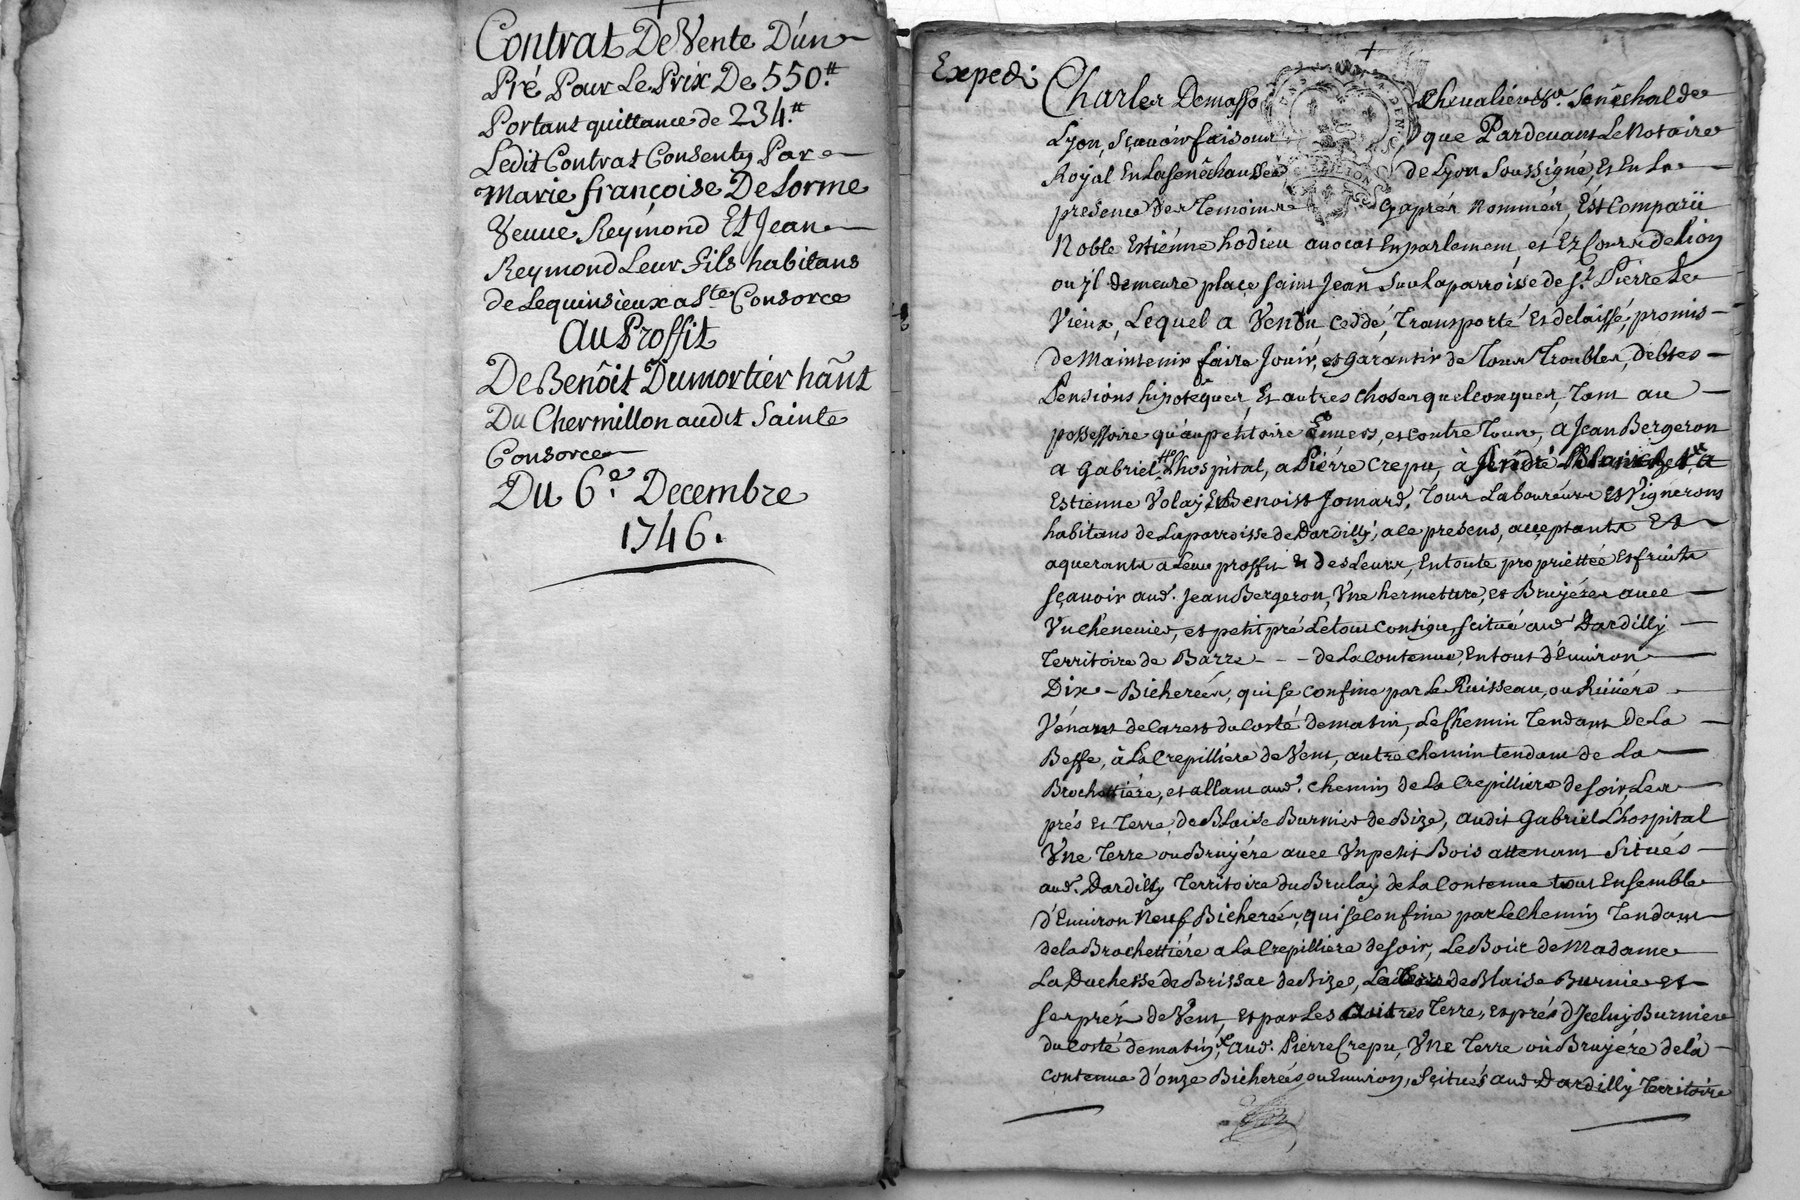 Contrat De Vente D'un
Pré Pour Le Prix De 550.tt
Portant quittance de 234.tt
Ledit Contrat Consenty Par
Marie françoise Delorme
Veuve Reymond Et Jean
Reymond Leur fils habitans
de Lequinsieux a Ste Consorce
Au Proffit
De Benôit Dumortier hãnt
Du Chermillon audit Sainte
Consorce
Du 6.e Decembre
1746.
Expedié
Charles Demasso Chevalier Senéchal de
Lyon, sçavoir faisons que Pardevant Le Notaire
Royal En La Senêchaussée de Lyon Soussigné, Et En La
presence des Temoins Cyaprés Nommés, Est Comparü
Noble Estiénne hodieu avocat En parlement et Ez Cours de lion
ou jl demeure place saint Jean Sur La parroisse de St. Pierre Le
Vieux, Lequel a Vendu Ceddé, Transporté Et delaissé, promis
de Maintenir faire Jouir, et garantir de Tous Troubles, debtes
Pensions hipotêques, Et autres choses quelconques, Tant au
possessoire qu'au petitoire Envers, et contre Tous, a Jean Bergeron
a Gabriel Lhospital, a Piérre Crepu, à André
Estienne Volay Et Benoist Jomard, Tous Laboureurs Et Vignerons
habitans de La parroisse de Dardilly, a ce presens, acceptants Et
aquerants a Leur proffit Et des Leurs, En toute propriettée Et fruits
sçavoir aud. Jean Bergeron, Vne hermeture, et Bruyéres avec
Vn chenevier, et petit pré Le tout contigu, scitué aud. Dardilly
Territoire de Barre - - - de La Contenue, En tout d'Environ
Dix - Bicherées, qui se Confine par Le Ruisseau, ou Riviére
Vénant de Larest du Costé de matin, Le Chemin Tendant De La
Beffe, à La Crepilliére de Vent, autre Chemin tendant de La
Brochettiére, et allant aud. chemin de La Crepilliére de soir, Les
prés Et Terre de Blaise Burnier de Bize, audit Gabriel Lhospital
Vne Terre ou Bruyére avec Vn petit Bois attenant Situés
aud. Dardilly Territoire du Brulay de La Contenue tout Ensemble
d'Environ Neuf Bicherées, qui se Confine par Le Chemin Tendant
de la Brochettiére a La Crepilliére de soir, Le Bois de Madame
La Duchesse de Brissac de Bize, La Terre de Blaise Burnier Et
ses prés de Vent, Et par Les autres Terre, et prés d'Jceluy Burnier
du Costé de matin, aud. Pierre Crepu, Vne Terre où Bruyére de la
contenue d'onze Bicherées ou Environ, Scitués aud. Dardilly Territoire